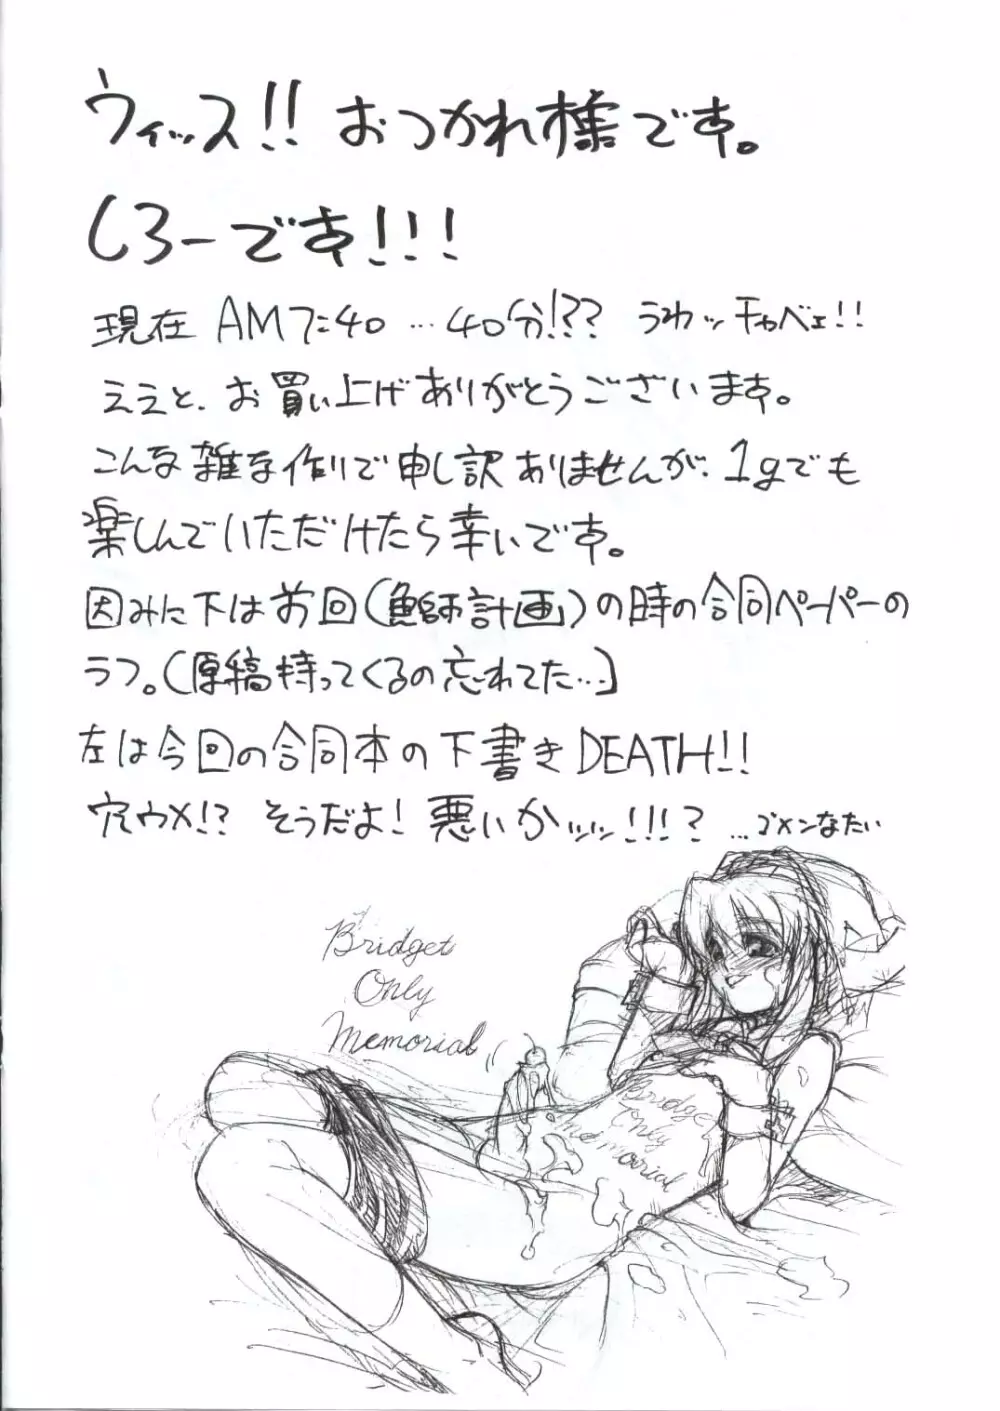 ウィッス!! おつかれ様です。
しろーです!!!
現在 AM7:40 …40分!?? うわッチャベェ!!
ええと、お買い上げありがとうございます。
こんな雑な作りで申し訳ありませんが、1gでも
楽しんでいただけたら幸いです。
因みに下は前回(鮒師計画)の時の合同ペーパーの
ラフ。(原稿持ってくるの忘れてた…)
左は今回の合同本の下書きDEATH!!
穴ウメ!? そうだよ! 悪いかッッッ!!!? …ゴメンなたい
Bridget
Only
Memorial
Bridget
Only
Memorial